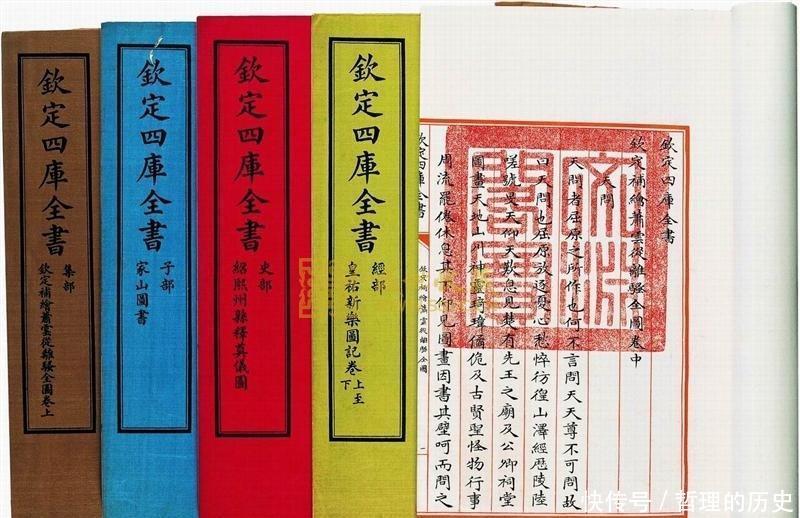 欽定四庫全書
欽定補繪蕭雲從離騷全圖卷中
天問
天問者屈原之所作也何不言問天天尊不可問故
曰天問也屈原放逐憂心愁悴彷徨山澤經歷陵陸
嗟號旻天仰天歎息見楚有先王之廟及公卿祠堂
圖畫天地山川神靈琦瑋僪佹及古賢聖怪物行事
周流罷倦休息其下仰見圖畫因書其壁呵而問之
欽定四庫全書
欽定補繪蕭雲從離騷全圖
一
文淵閣寶
欽定四庫全書
經部
皇祐新樂圖記卷上至下
欽定四庫全書
史部
紹熙州縣釋奠儀圖
欽定四庫全書
子部
家山圖書
欽定四庫全書
集部
欽定補繪蕭雲從離騷全圖卷上
快传号/哲理的历史